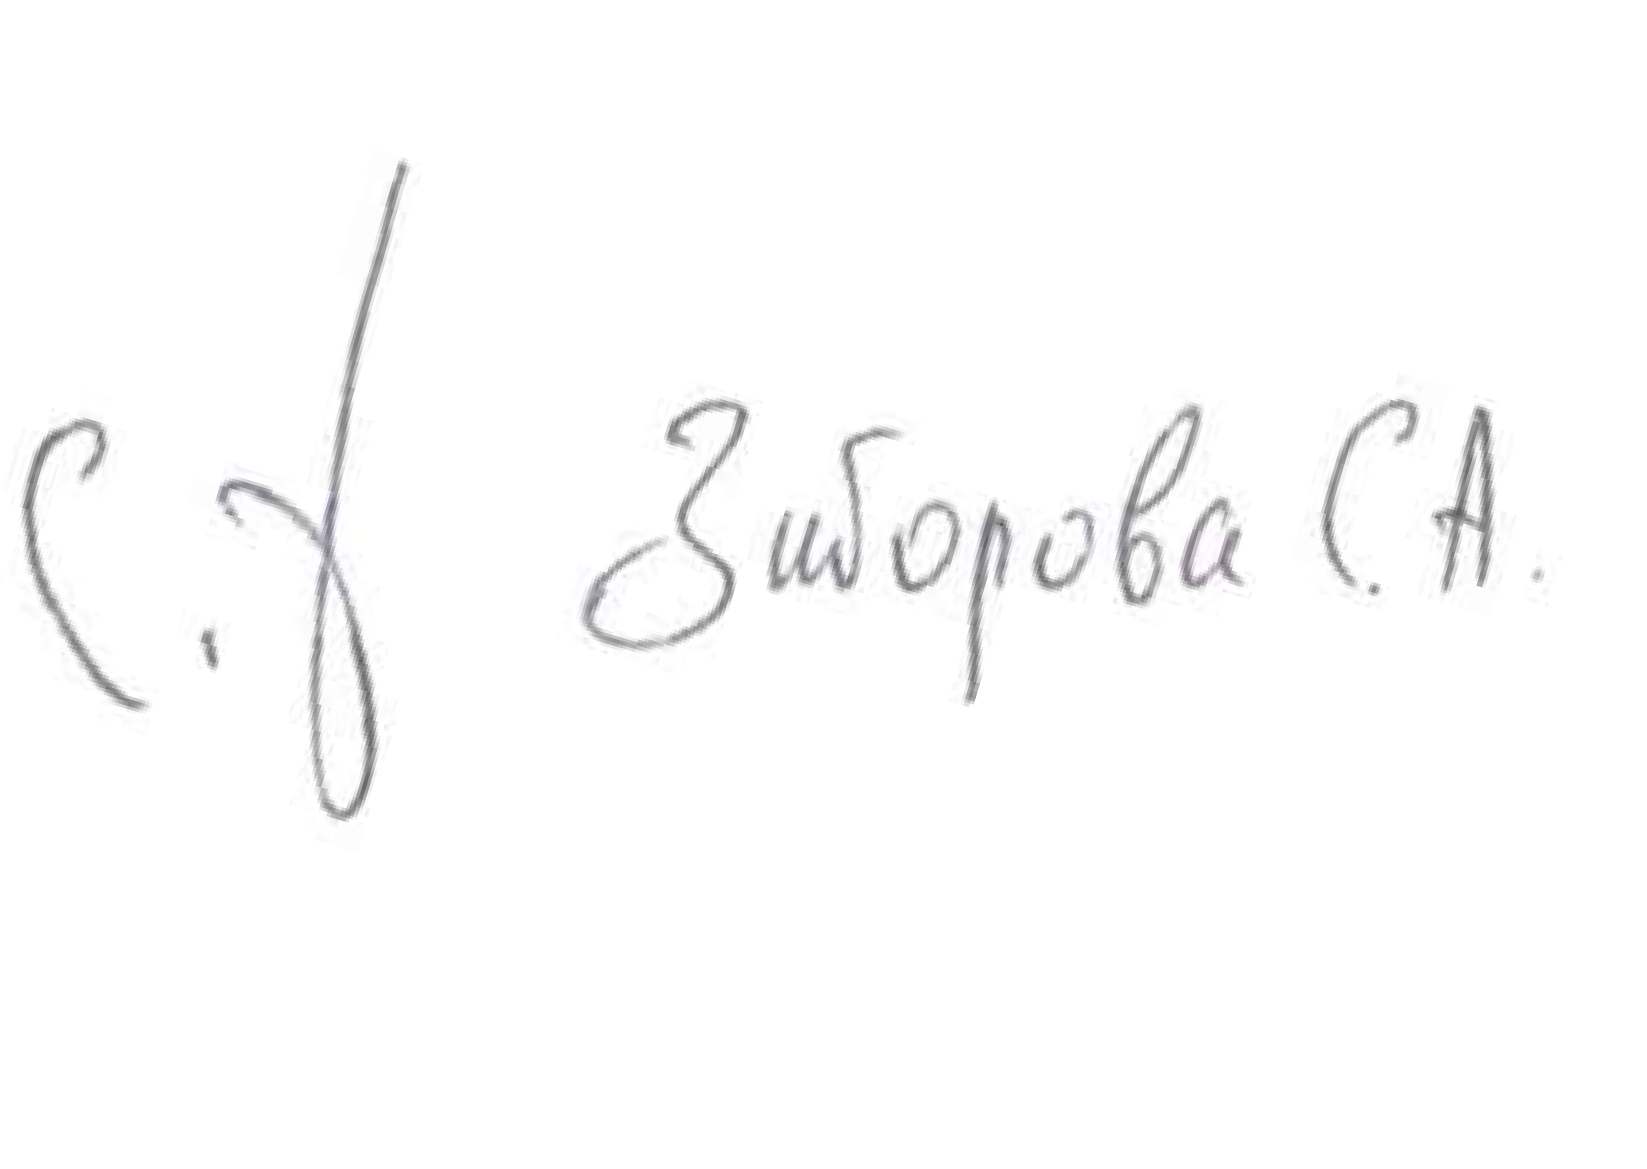 Зиборова С. А.